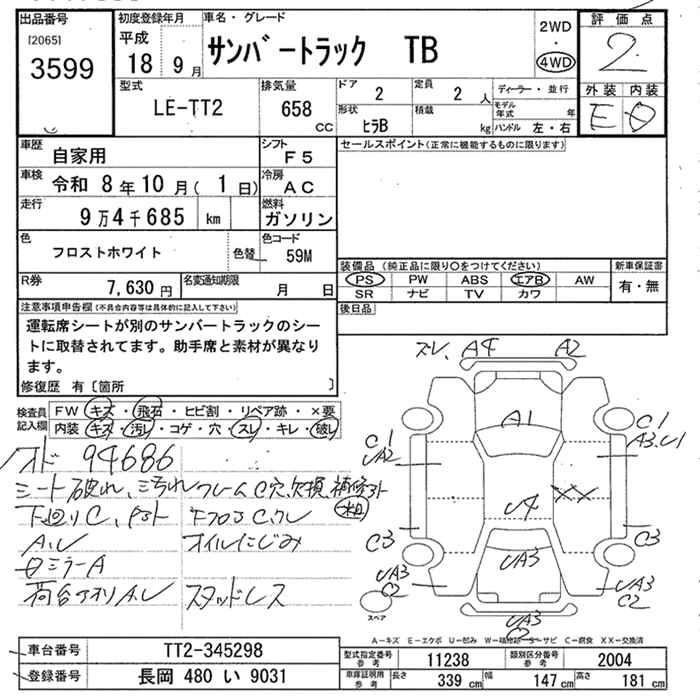 出品番号
[2065]
3599
初度登録年月
平成
18 9月
車名・グレード
サンバートラック TB
2WD
・
4WD
評価点
2
外装 内装
E D
型式
LE-TT2
排気量
658
CC
ドア
2
定員
2 人
形状
ﾋﾗB
積載
kg
ディーラー・並行
モデル年式 年
ハンドル 左・右
車歴
自家用
シフト
F5
セールスポイント(正常に機能するものに限ります)
車検
令和 8年10月( 1日)
冷房
AC
走行
9万4千685 km
燃料
ガソリン
色
フロストホワイト
色替
色コード
59M
装備品 (純正品に限り○をつけてください)
新車保証書
PS PW ABS エアB AW
SR ナビ TV カワ
有・無
R券
7,630円
名変通知期限
月 日
後日品
注意事項申告欄(不具合内容等は具体的に記入して下さい)
運転席シートが別のサンバートラックのシー
トに取替されてます。助手席と素材が異なり
ます。
修復歴 有〔箇所 〕
検査員記入欄
FW キズ・飛石・ヒビ割・リペア跡・×要
内装 キズ・汚レ・コゲ・穴・スレ・キレ・破レ
94686
シート破れ、汚れ フレームC穴、欠損、補修跡
下回りC
オイルにじみ
ミラーA
荷台アオリA.U スタッドレス
ズレ、A4 A2
A1
C1
UA2
C1
A3.U1
U4
XX
C3
C3
UA3
UA3
C2
UA3
C2
UA3
スペア
A-キズ E-エクボ U-凹み W-補修跡 S-サビ C-腐食 XX-交換済
車台番号
TT2-345298
登録番号
長岡 480 い 9031
型式指定番号
参考
11238
類別区分番号
参考
2004
車庫証明用
参考
長さ 339 cm 幅 147 cm 高さ 181 cm